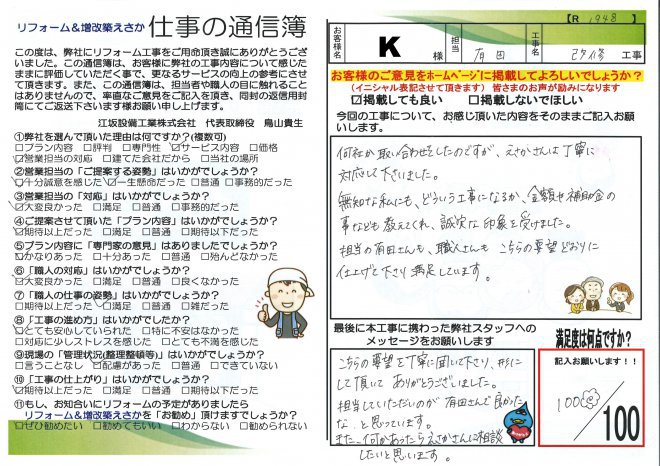 リフォーム＆増改築えさか 仕事の通信簿
この度は、弊社にリフォーム工事をご用命頂き誠にありがとうござ
いました。この通信簿は、お客様に弊社の工事内容について感じた
ままに評価していただく事で、更なるサービスの向上の参考にさせ
て頂きます。また、この通信簿は、担当者や職人の目に触れること
はありませんので、率直なご意見をご記入を頂き、同封の返信用封
筒にてご返送下さいます様お願い申し上げます。
江坂設備工業株式会社 代表取締役 鳥山貴生
①弊社を選んで頂いた理由は何ですか?(複数可)
□プラン内容 □評判 □専門性 ☑サービス内容 □価格
☑営業担当の対応 □建てた会社だから □当社の場所
②営業担当の「ご提案する姿勢」はいかがでしょうか?
☑十分誠意を感じた ☑一生懸命だった □普通 □事務的だった
③営業担当の「対応」はいかがでしょうか?
☑大変良かった □満足 □普通 □事務的だった
④ご提案させて頂いた「プラン内容」はいかがでしょうか?
☑期待以上だった □満足 □普通 □期待以下だった
⑤プラン内容に「専門家の意見」はありましたでしょうか?
☑かなりあった □十分あった □普通 □殆んどなかった
⑥「職人の対応」はいかがでしょうか?
☑大変良かった □満足 □普通 □良くなかった
⑦「職人の仕事の姿勢」はいかがでしょうか?
☑期待以上だった □満足 □普通 □雑だった
⑧「工事の進め方」はいかがでしたか?
☑とても安心していられた □特に不安はなかった
□対応に少しストレスを感じた □とても不満を感じた
⑨現場の「管理状況(整理整頓等)」はいかがでしょうか?
☑言うことなし □配慮があった □普通 □できていない
⑩「工事の仕上がり」はいかがでしょうか?
☑期待以上だった □満足 □普通 □期待以下だった
⑪もし、お知合いにリフォームの予定がありましたら
リフォーム＆増改築えさかを「お勧め」頂けますでしょうか?
☑ぜひ勧めたい □勧めてもいい □わからない □勧められない
【R 1948 】
お客様名 K 様 担当 有田 工事名 改修 工事
お客様のご意見をホームページに掲載してよろしいでしょうか？
（イニシャル表記させて頂きます） 皆さまのお声が励みになります
☑掲載しても良い □掲載しないでほしい
今回の工事について、お感じ頂いた内容をそのままご記入お願
いします。
何社か取い合わせをしたのですが、えさかさんは丁寧に
対応して下さいました。
無知な私にも、どういう工事になるか、金額や補助金の
事なども教えてくれ、誠実な印象を受けました。
担当の有田さんも、職人さんも こちらの要望どおりに
仕上げて下さり満足しています。
最後に本工事に携わった弊社スタッフへの
メッセージをお願いします。
こちらの要望を丁寧に聞いて下さり、形に
して頂いて ありがとうございました。
担当していただいたのが 有田さんで良かった
な と思っています。
また、何かあったらえさかさんに相談
したいと思います。
満足度は何点ですか？
記入お願いします！！
100
／100